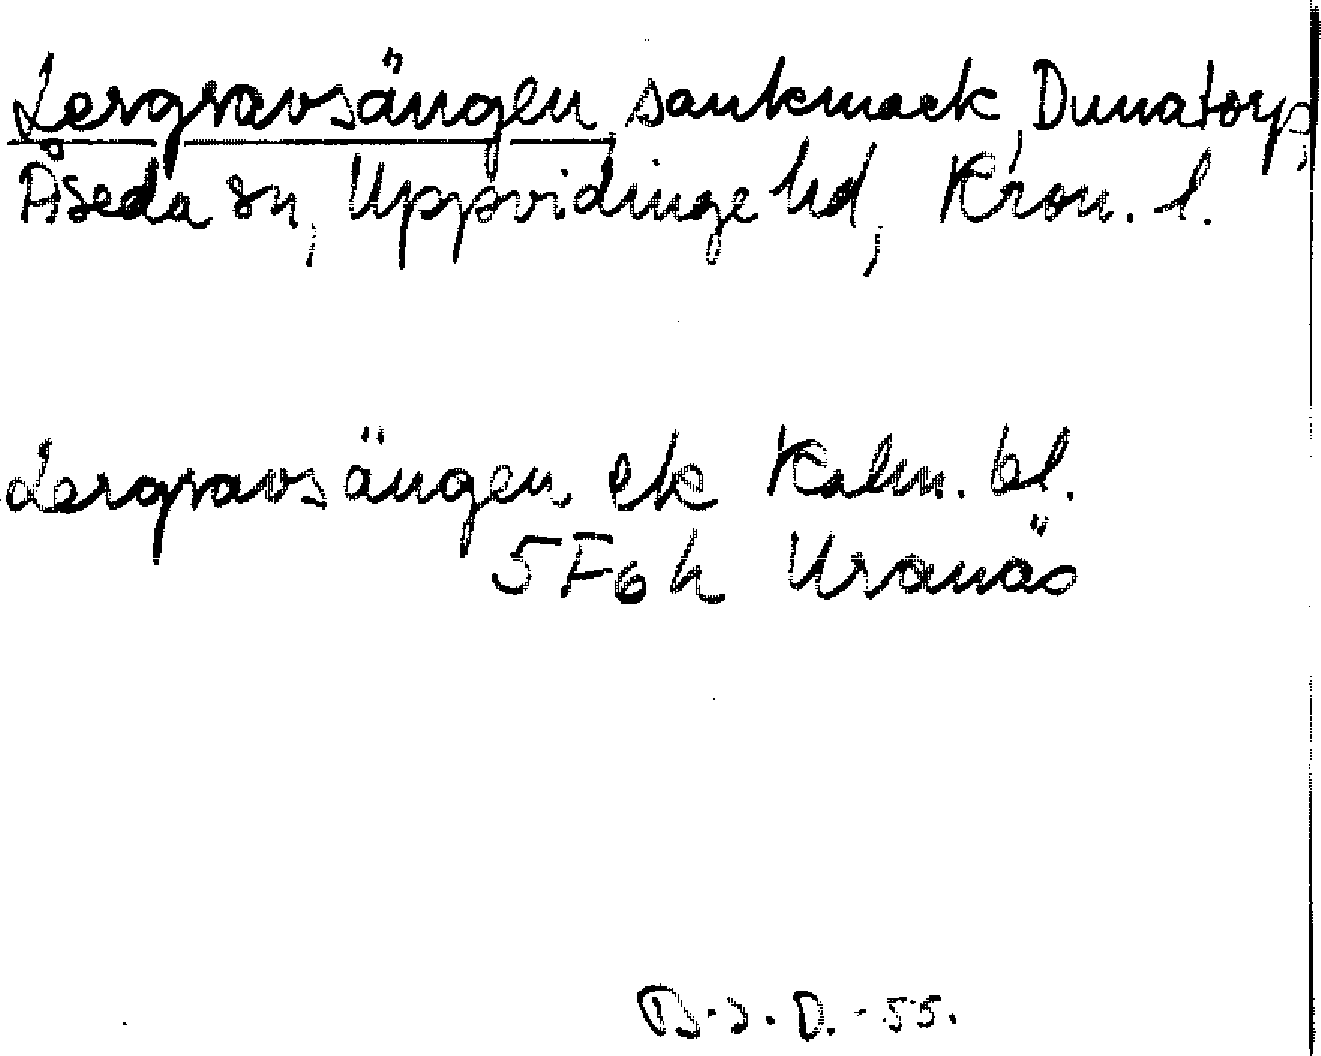 Lergravsängen, sankmark, Dunatorp,
Åseda sn, Uppvidinge hd, Kron. l.
Lergravsängen ek Kalm. bl.
5F6h Uranäs
B.J.D. -55.